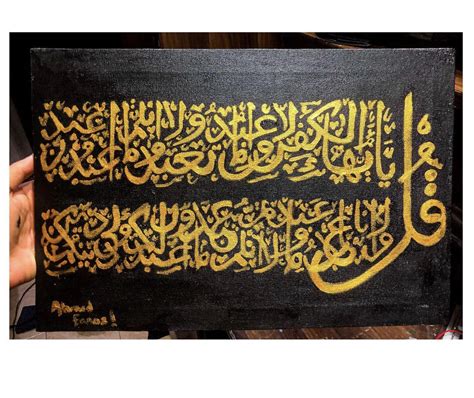 قل يأيها الكفرون لا أعبد ما تعبدون ولا أنتم عبدون ما أعبد
ولا أنا عابد ما عبدتم ولا أنتم عبدون ما أعبد لكم دينكم ولي دين